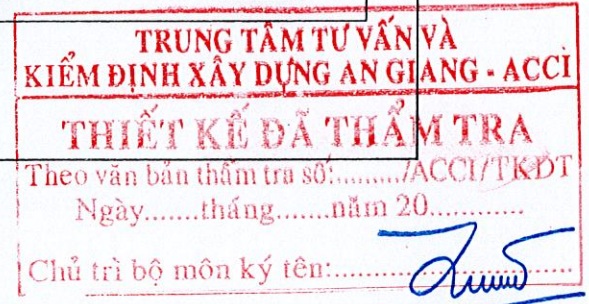 TRUNG TÂM TƯ VẤN VÀ
KIỂM ĐỊNH XÂY DỰNG AN GIANG - ACCI
THIẾT KẾ ĐÃ THẨM TRA
Theo văn bản thẩm tra số:........./ACCI/TKDT
Ngày.......tháng.......năm 20............
Chủ trì bộ môn ký tên:..............................